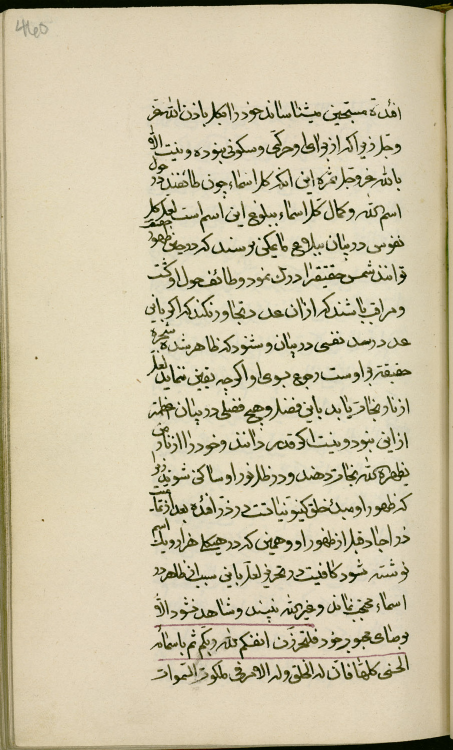 460
افئدة مستجنین میشناساند خود را بکل باذن الله عز
وجل زیرا که از برای او حرکتی و سکونی نبوده و نیست الا
بالله عز وجل ثمره این آنکه کل اسماء چون طائفند در حول
اسم الله و کمال کل اسماء ببلوغ این اسم است لعل کل
نفوس در بیان ببلاغی مایمکن برسند که در حین ظهور
توانند شمس حقیقت را درک نمود و طائف حول او گشت
و مراقب باشند که از آن عدد تجاوز نکند که اگر باین
عدد رسد نفسی در بیان و نشود که ظاهر شده شجره
حقیقة بر اوست رجوع بسوی او اگر چه یقین ننماید لعل
از نار نجات یابد باین فضل و هیچ فضلی در بیان اعظم تر
از این نبود و نیست اگر قدر دانند و خود را از نار
بظهور الله نجات دهند و در ظل نور او ساکن شوند
که ظهور او مبدء خلق کینونیات است در ذر افئده بعد از
ذر اجساد قبل از ظهور او و همین که در هیکل هزار و یک اسم
نوشته شود کافیست در تحریر لعل باین سبب ظاهر در
اسماء محتجب نماند و غیر الله نبیند و شاهد نشود الا
برضای محبوب خود فلتحرزن انفسکم لله ربکم ثم باسمائه
الحسنی کلها فان له الخلق و له الامر فی ملکوت السموات